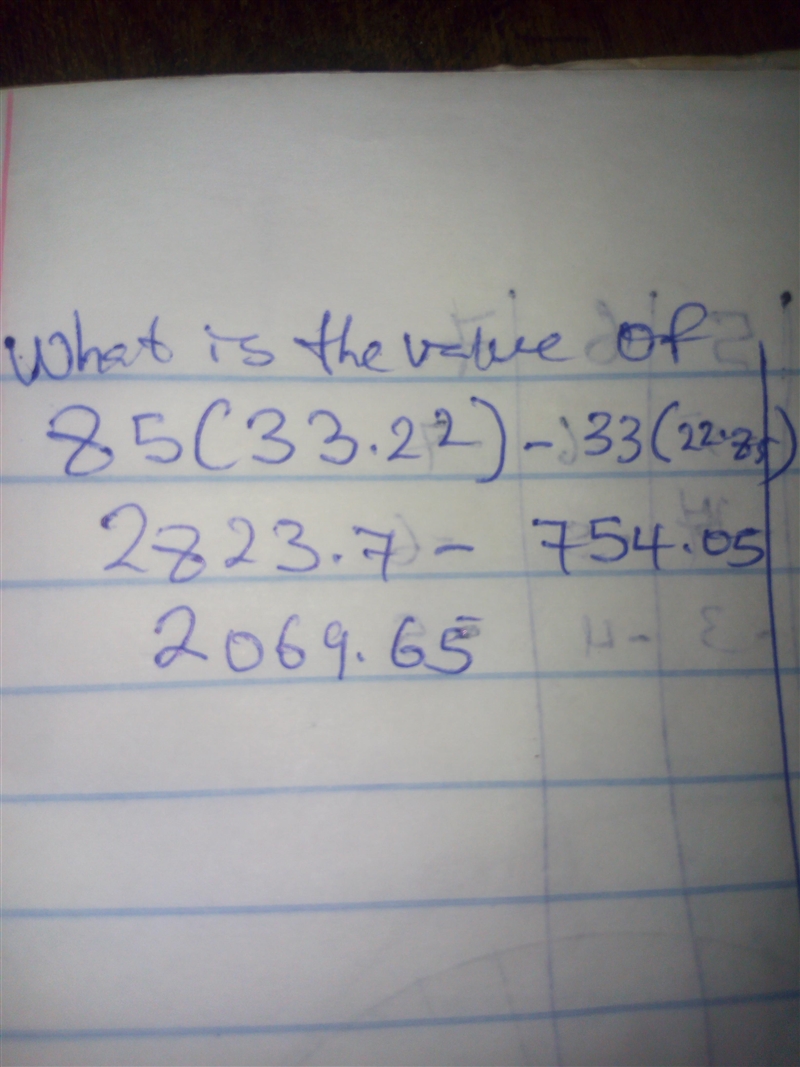 What is the value of
85(33.22) - 33(22.85)
2823.7 - 754.05
2069.65